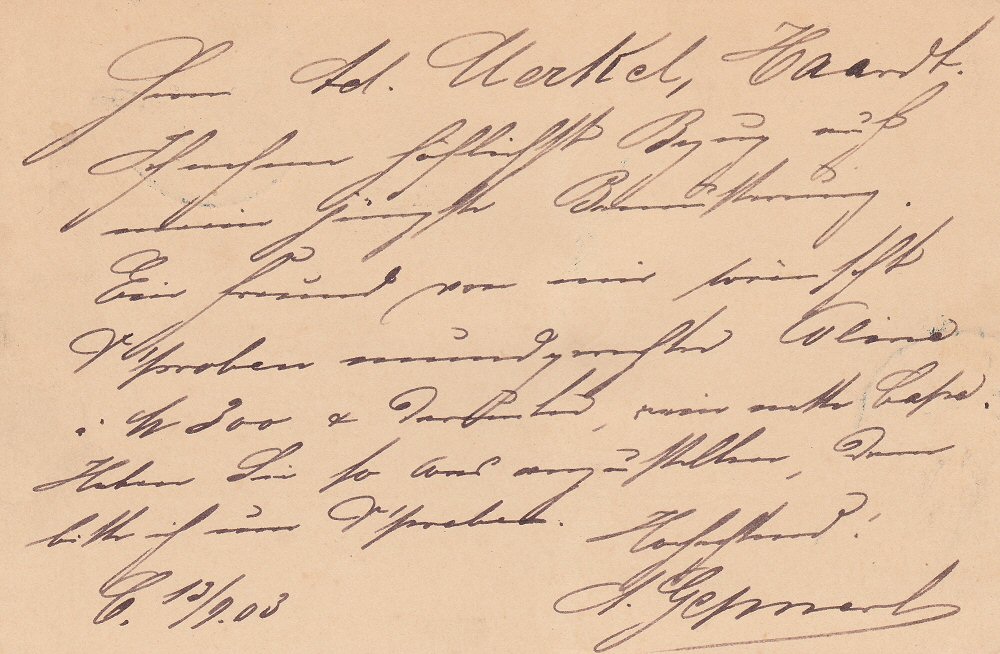 Herrn Ad. Merkel, Haardt.
Ich nehme höflichst Bezug auf
meine jüngste Bemusterung.
Ein Freund von mir wünscht
Proben mundgerechter Weine
M 300 & darunter, nette
Haben Sie so was anzustellen, dann
bitte ich um Proben. Hochachtend!
C. 13/9.03